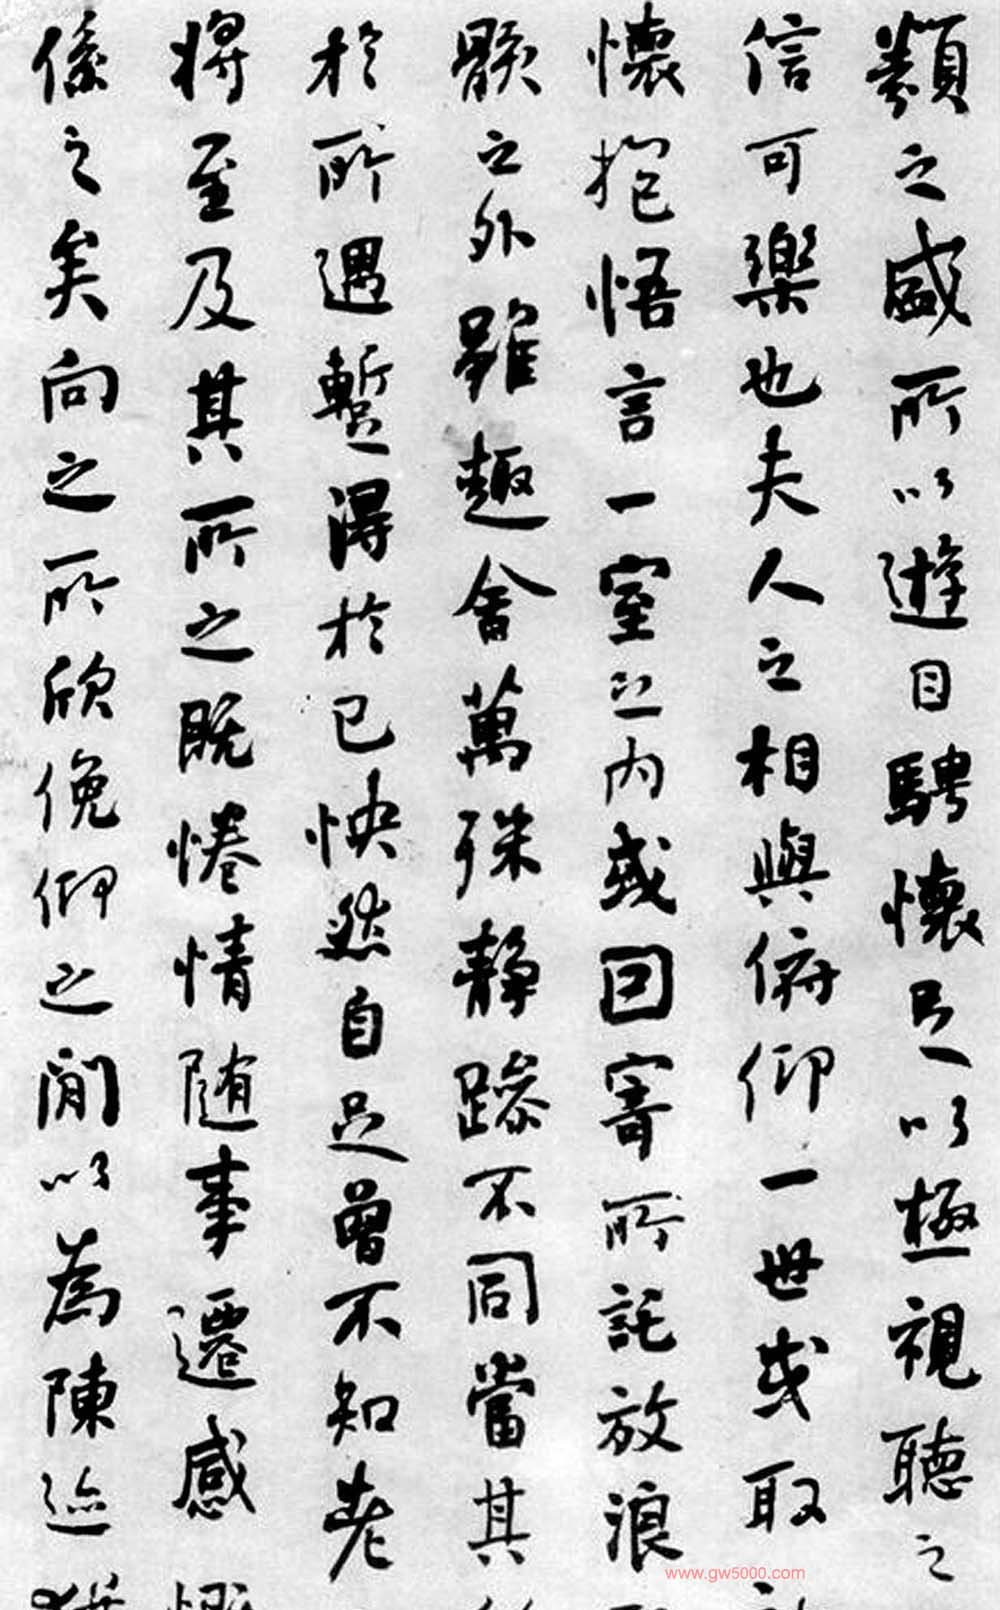 類之盛所以遊目騁懷足以極視聽之
信可樂也夫人之相與俯仰一世或取
懷抱悟言一室之内或回寄所託放浪
骸之外雖趣舍萬殊靜躁不同當其
於所遇蹔得於己怏然自足曾不知老
將至及其所之既惓情隨事遷感
係之矣向之所欣俛仰之閒以為陳迹
www.gw5000.com